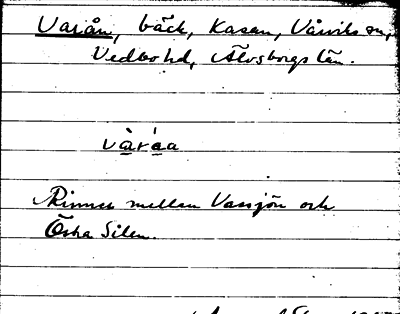 Varån, bäck, Kasen, Vårviks sn,
Vedbo hd, Älvsborgs län.
vàráa
Rinner mellan Vassjön och
Östra Silen.